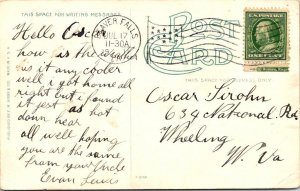 THIS SPACE FOR WRITING MESSAGES
POST CARD
BEAVER FALLS
JUL 17
11-30A
THIS SPACE FOR ADDRESS ONLY
Hello Oscar
how is the
is it any cooler
well i got home all
right but i found
it jest as hot
down hear
all well hoping
you are the same
from your Uncle
Evan Lewis
Oscar Sirohn
639 National Rd
Wheeling
W. Va